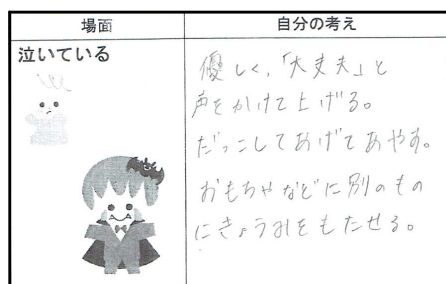 場面
自分の考え
泣いている
優しく、「大丈夫」と
声をかけて上げる。
だっこしてあげてあやす。
おもちゃなどに別のもの
にきょうみをもたせる。